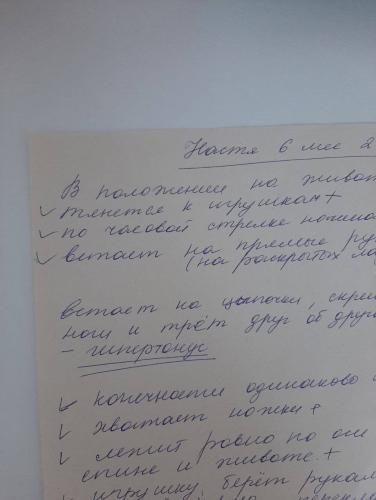 Настя 6 мес 2
В положении на живот
✓ тянется к игрушкам+
✓ по часовой стрелке
✓ встаёт на прямые ру
(на раскрытых ла
встает на цыпочки, скре
ноги и трёт друг об друг
- гипертонус
✓ конечности одинаково
✓ хватает ножки +
✓ лежит ровно по оси
спине и животе. +
игрушку берёт рукам